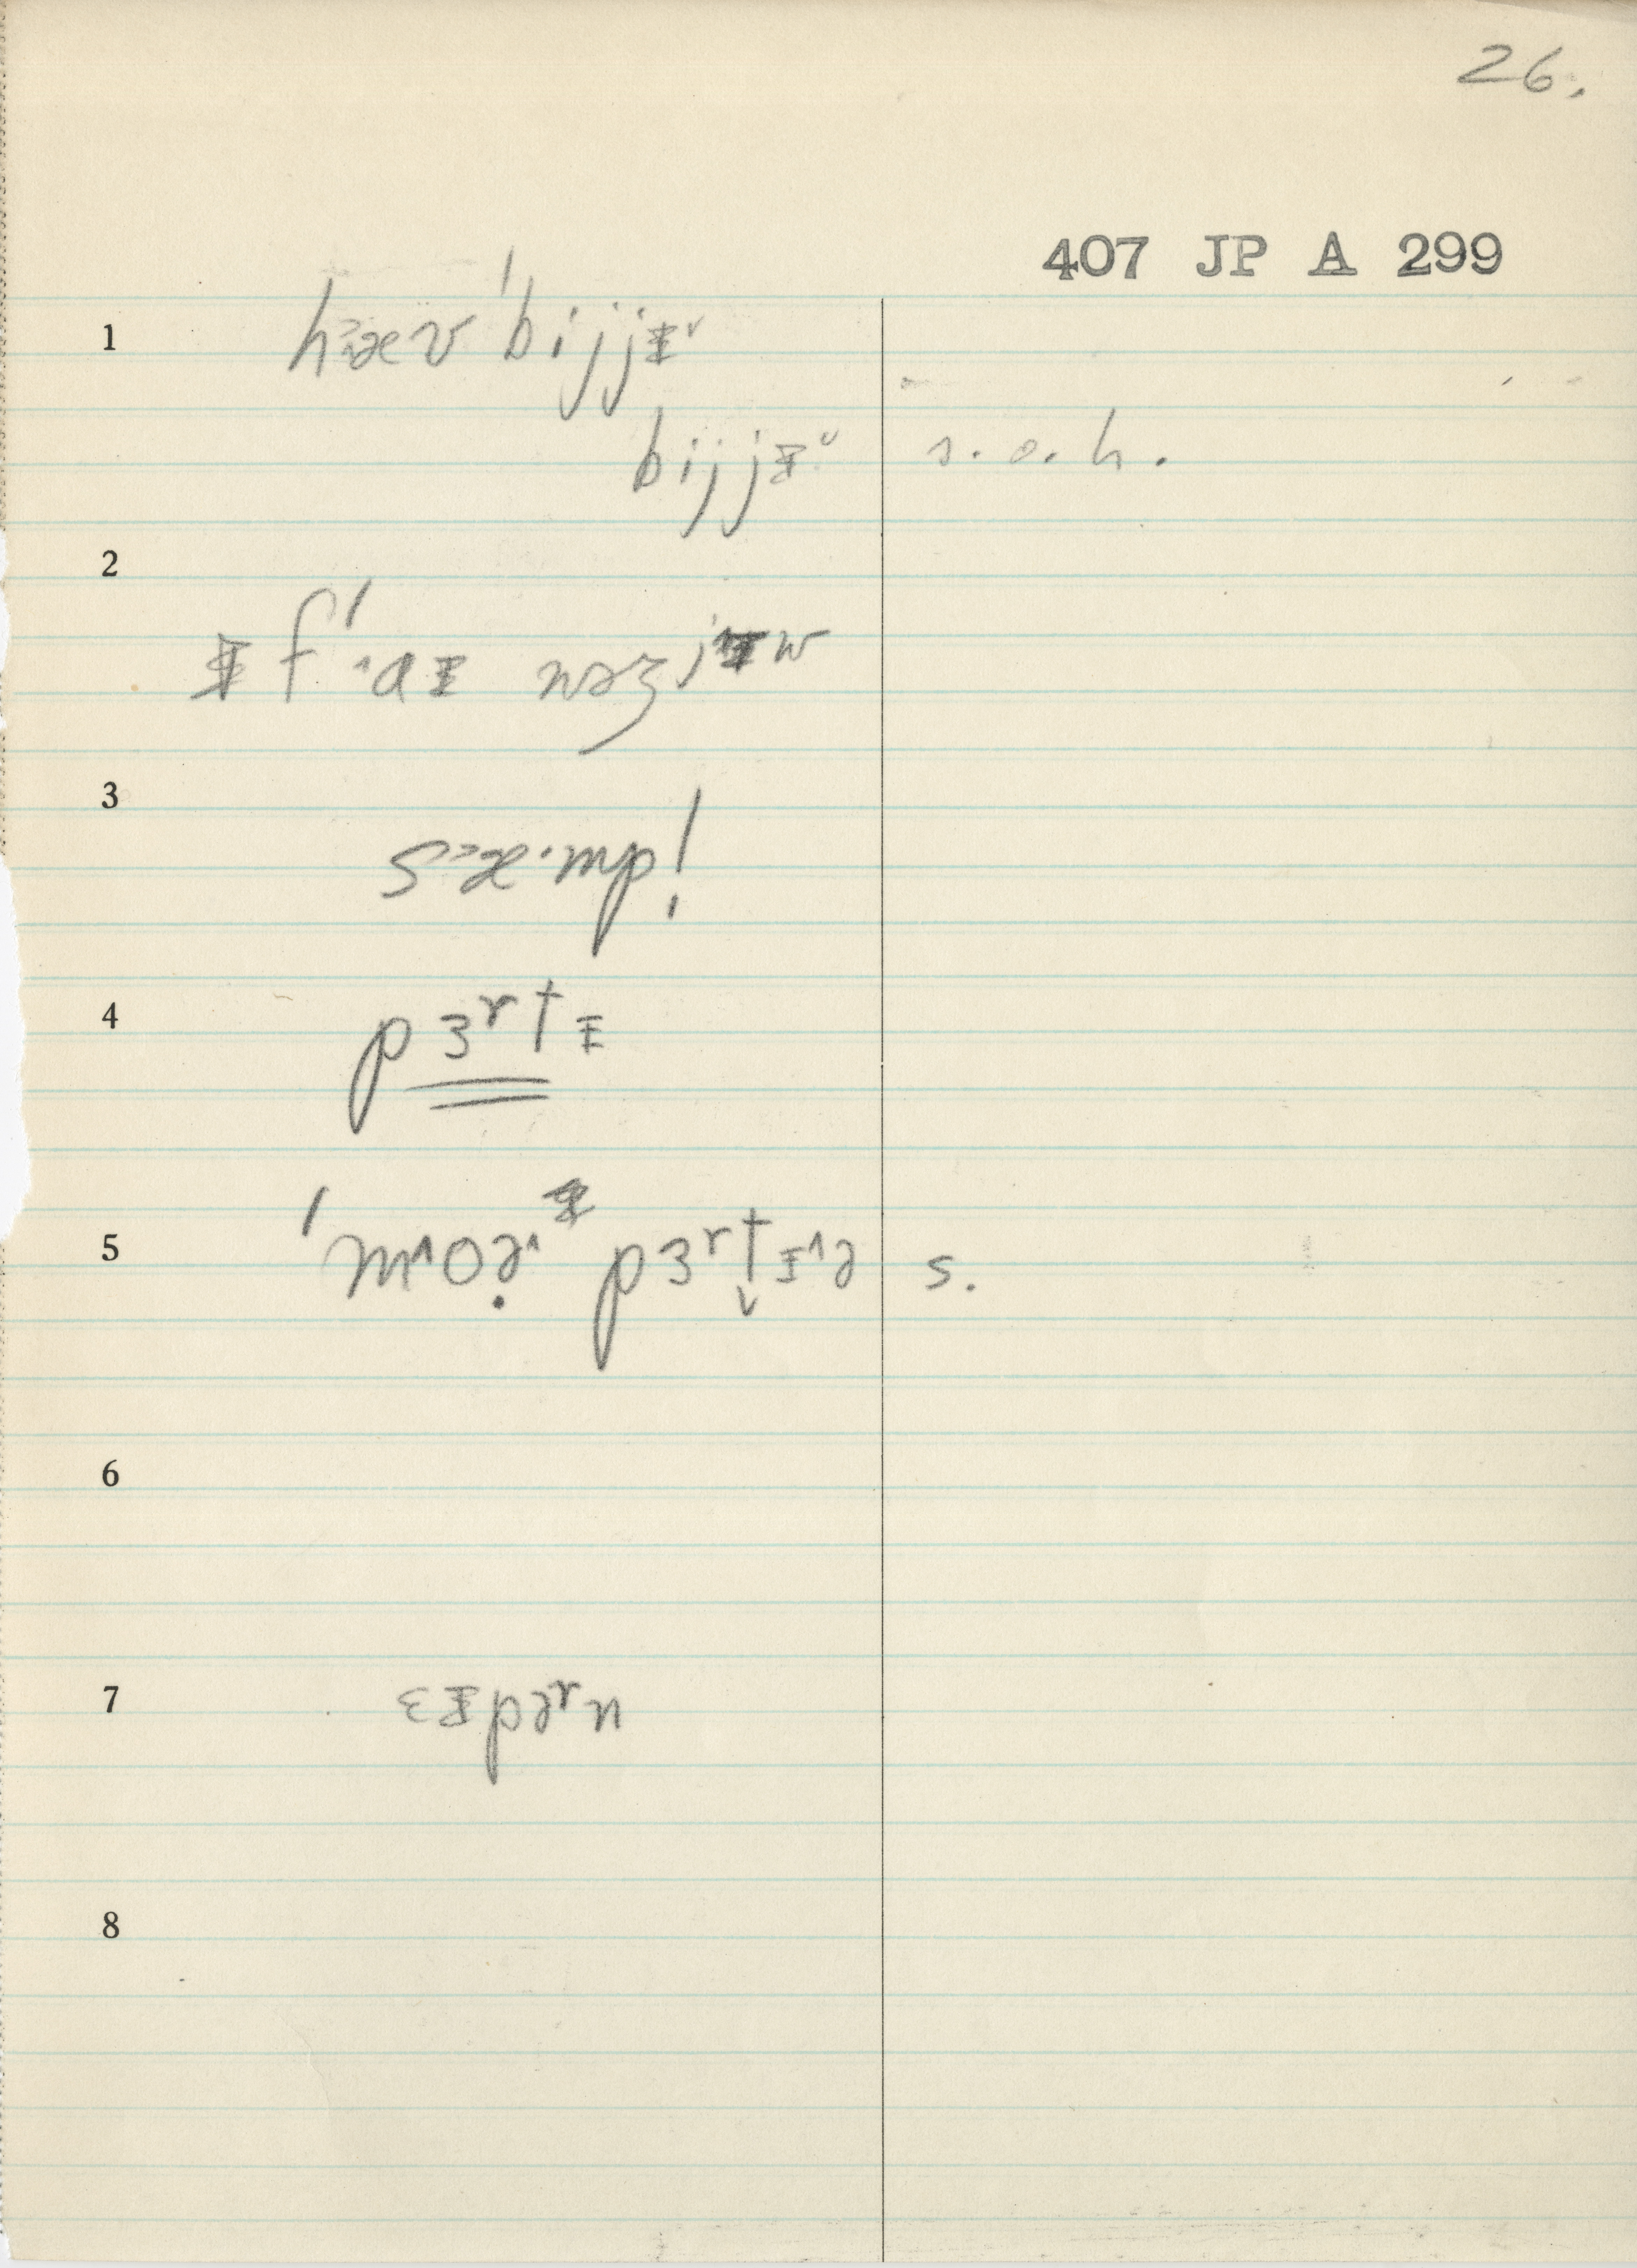 26.
407 JP A 299
1 hæv ˈbijjɪᵛ
bijjɪᵛ s.o.h.
2
ɪf ˈaɪ wəz jɪw
3 sæ·mp!
4 pɜʳtɪ
5 ˈmoə pɜʳtɪə s.
6
7 ɛɪpəʳn
8